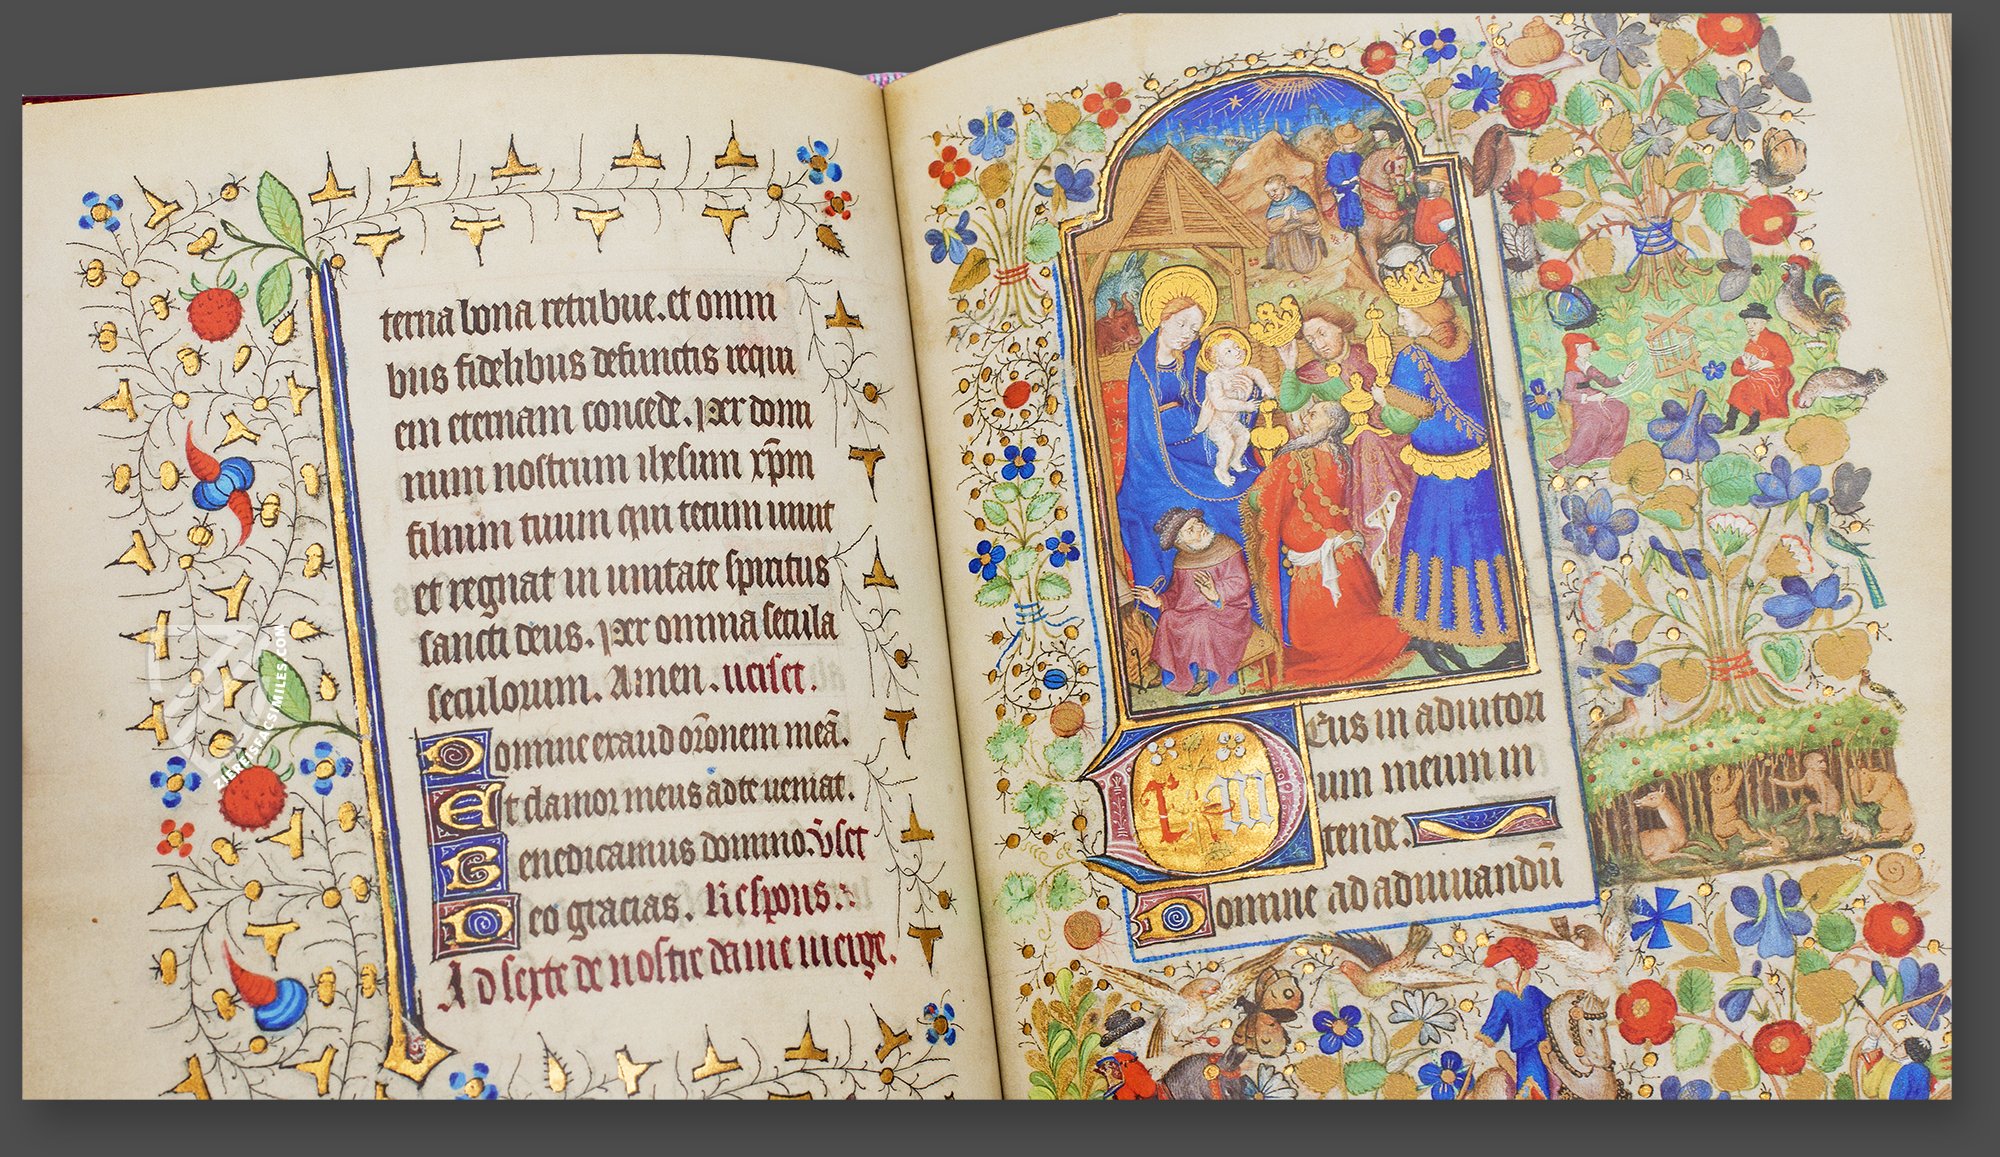 terna bona retribue. et omni
bus fidelibus defunctis requi
em eternam concede. Per domi
num nostrum ihesum xp̄m
filium tuum qui tecum uiuit
et regnat in unitate spiritus
sancti deus. Per omnia secula
seculorum. Amen. ucrset.
Domine exaudi or̄onem meā.
Et clamor meus ad te ueniat.
Benedicamus domino. v̄set
Deo gracias. Respons.
A d sexte de nostre dame uierge.
Deus in adiutori
um meum in
tende.
Domine ad adiuuandū
ZIEREIS FACSIMILES.COM